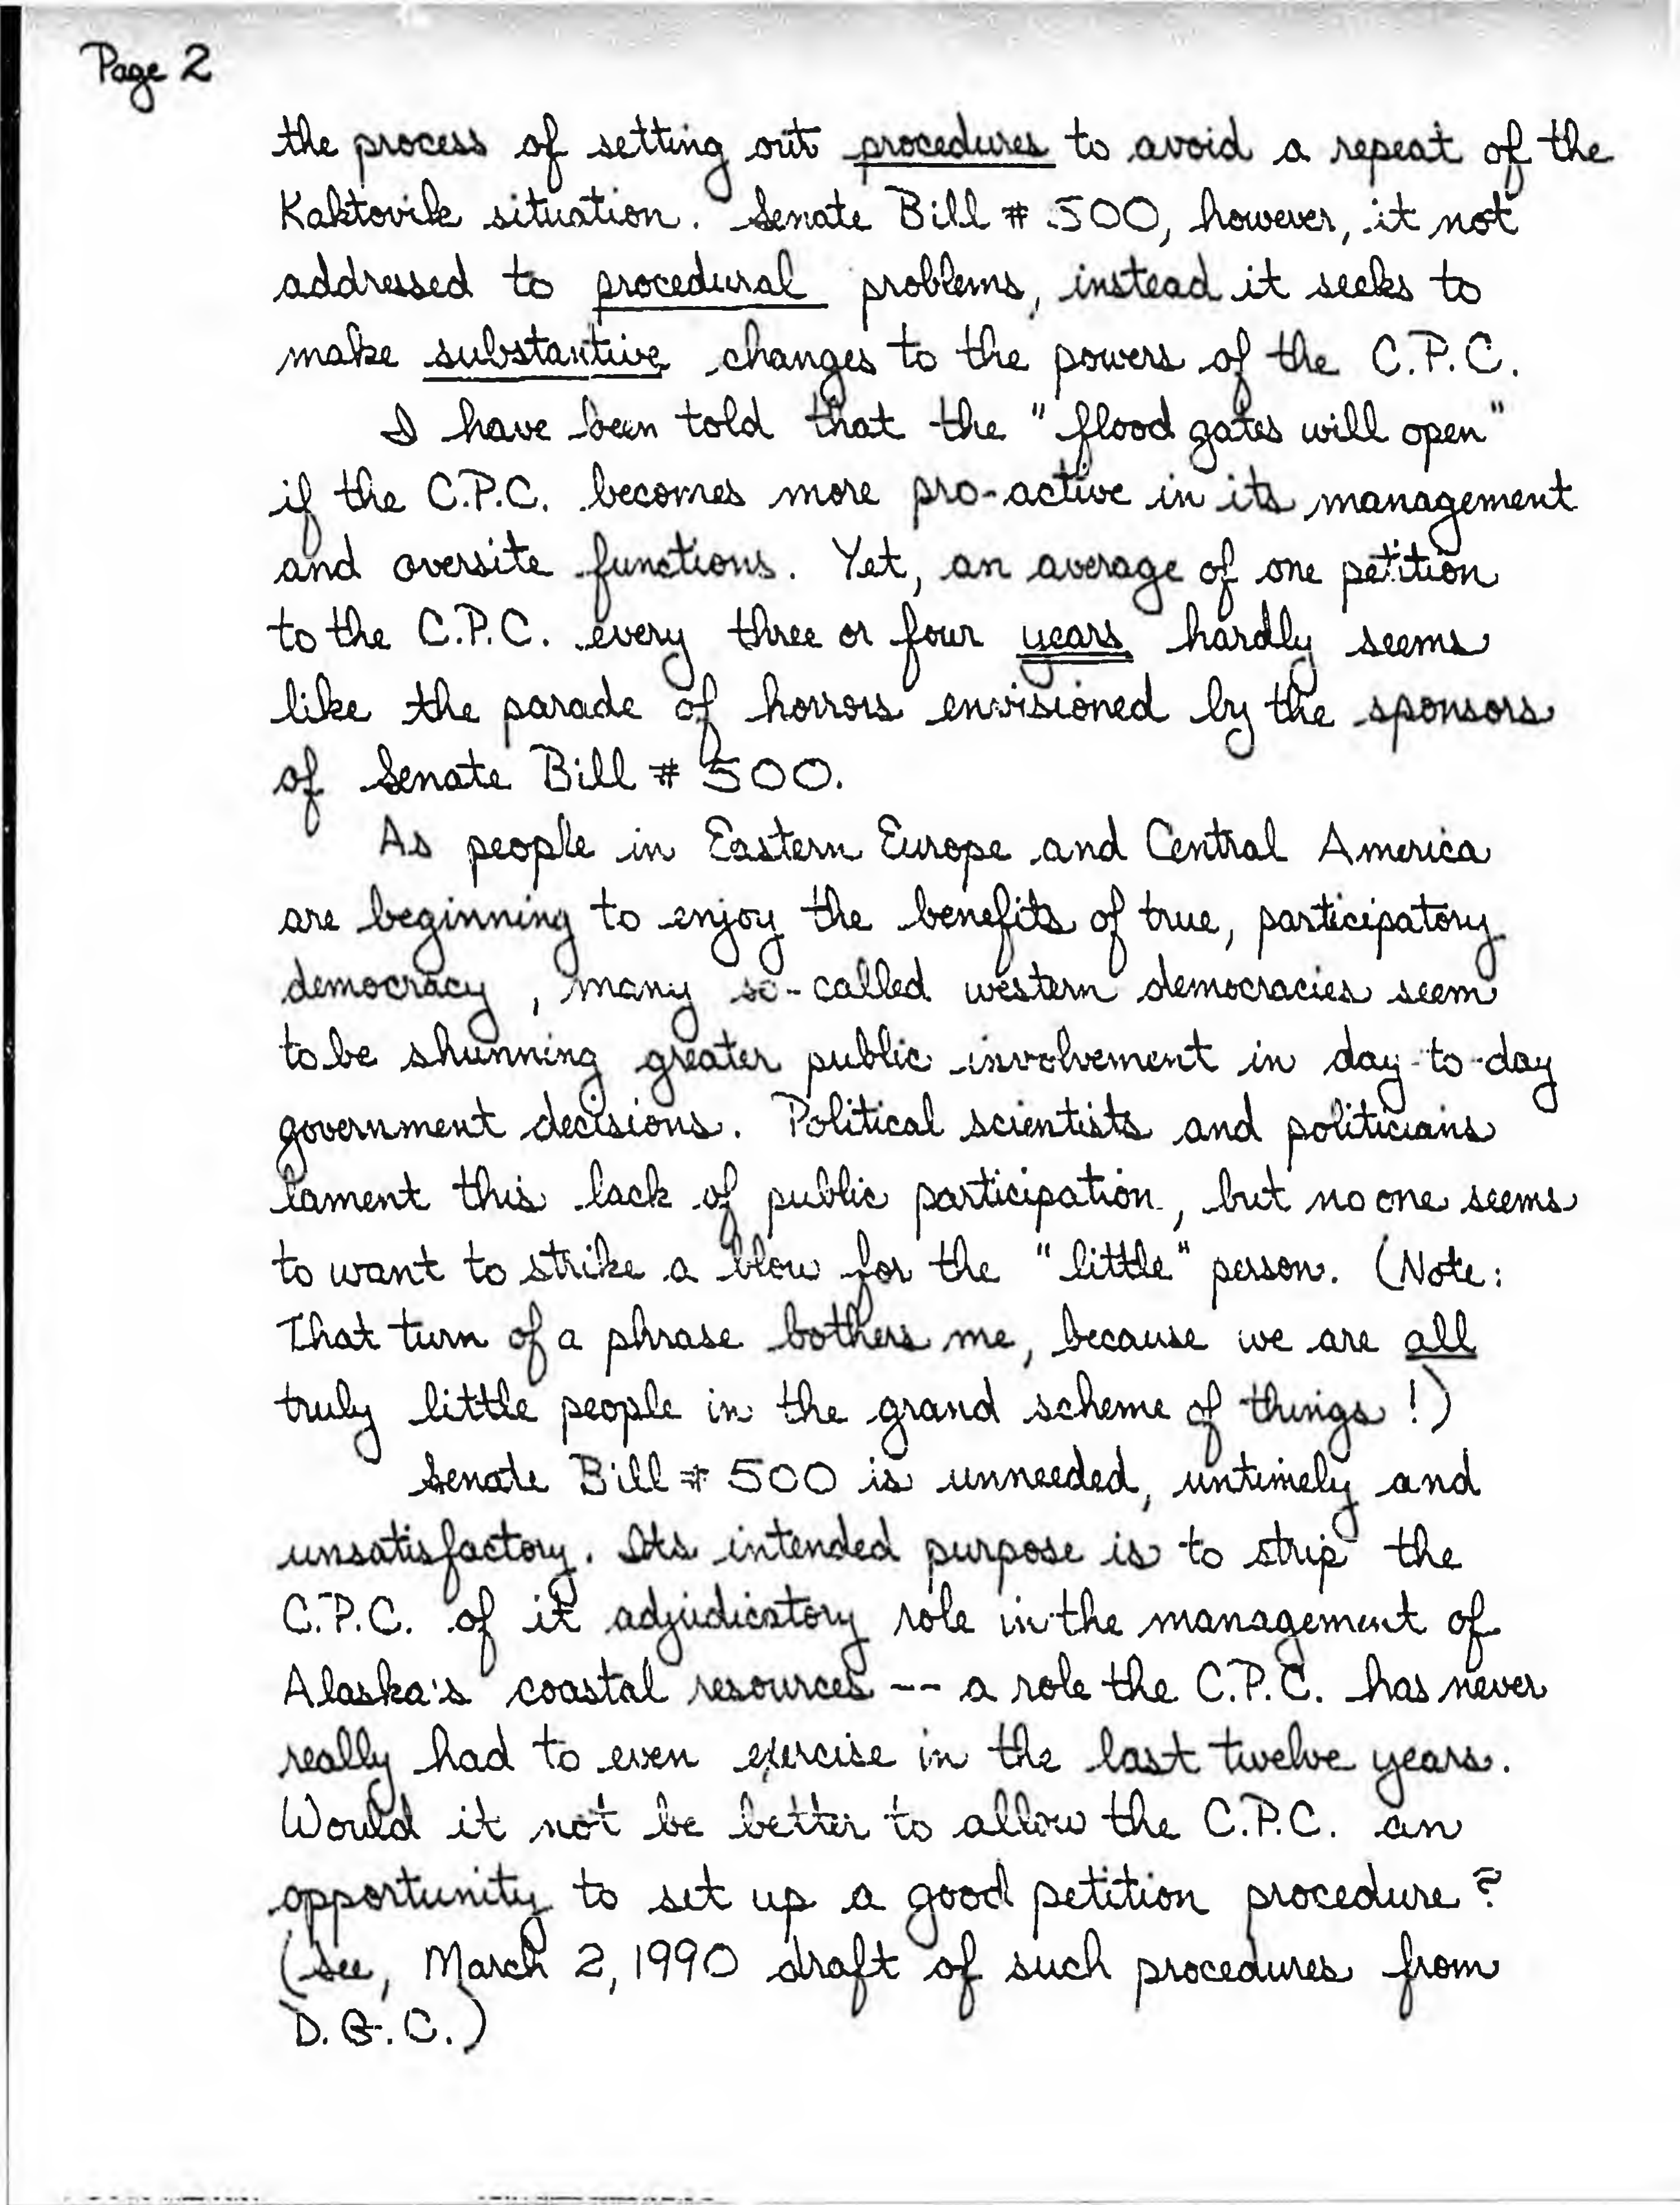 Page 2
the process of setting out procedures to avoid a repeat of the
Kaktovik situation. Senate Bill # 500, however, it not
addressed to procedural problems, instead it seeks to
make substantive changes to the powers of the C.P.C.
I have been told that the "flood gates will open"
if the C.P.C. becomes more pro-active in its management
and oversite functions. Yet, an average of one petition
to the C.P.C. every three or four years hardly seems
like the parade of horrors envisioned by the sponsors
of Senate Bill # 500.
As people in Eastern Europe and Central America
are beginning to enjoy the benefits of true, participatory
democracy, many so-called western democracies seem
to be shunning greater public involvement in day-to-day
government decisions. Political scientists and politicians
lament this lack of public participation, but no one seems
to want to strike a blow for the "little" person. (Note:
That turn of a phrase bothers me, because we are all
truly little people in the grand scheme of things!)
Senate Bill # 500 is unneeded, untimely and
unsatisfactory. Its intended purpose is to strip the
C.P.C. of it adjudicatory role in the management of
Alaska's coastal resources -- a role the C.P.C. has never
really had to even exercise in the last twelve years.
Would it not be better to allow the C.P.C. an
opportunity to set up a good petition procedure?
(See, March 2, 1990 draft of such procedures from
D.G.C.)